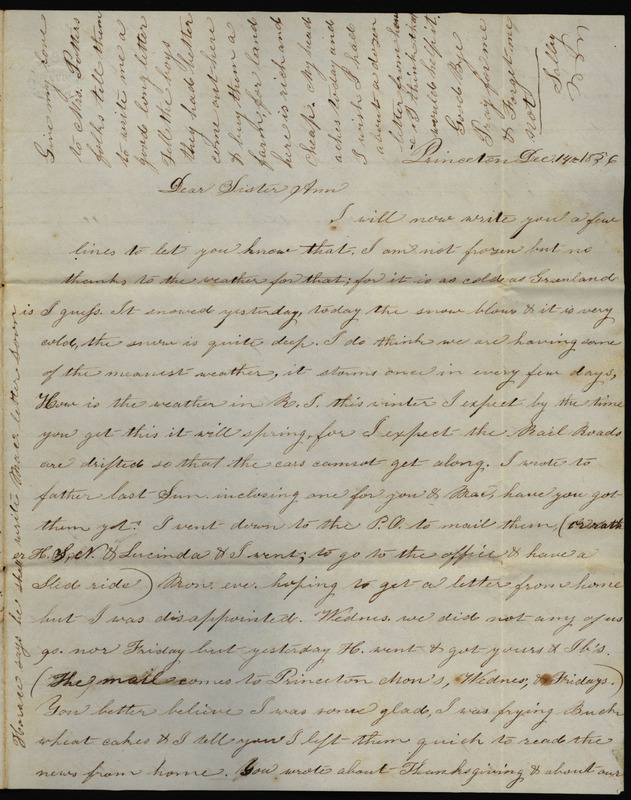 Give my love
to Mrs. Potters
folks tell them
to write me a
good long letter
Tell the boys
they had better
come out here
& buy them a
farm, for land
here is rich and
cheap. My head
aches today and
I wish I had
about a dozen
letters from home
I think that
would help it.
Good Bye
Pray for me
& Forget me
not
Princeton Dec. 14 1856
Dear Sister Ann
I will now write you a few
lines to let you know that, I am not frozen but no
thanks to the weather for that; for it is as cold as Greenland
is I guess. It snowed yesterday, today the snow blows & it is very
cold, the snow is quite deep. I do think we are having some
of the meanest weather, it storms once in every few days,
How is the weather in R. I. this winter I expect by the time
you get this it will spring, for I expect the Rail Roads
are drifted so that the cars cannot get along. I wrote to
father last Sun. inclosing one for you & Mar, have you got
them yet? I went down to the P.O. to mail them, (or rath
H. S, N. & Lucinda & I went; to go to the office & have a
Sled ride) Mon. eve. hoping to get a letter from home
but I was disappointed. Wednes. we did not any of us
go. nor Friday but yesterday H. went & got yours & Ib's.
(The mail comes to Princeton Mon's, Wednes, & Fridays.)
You better believe I was some glad, I was frying Buck
wheat cakes & I tell you I left them quick to read the
news from home. You wrote about Thanksgiving & about our
Horace says he shall write Mar a letter soon